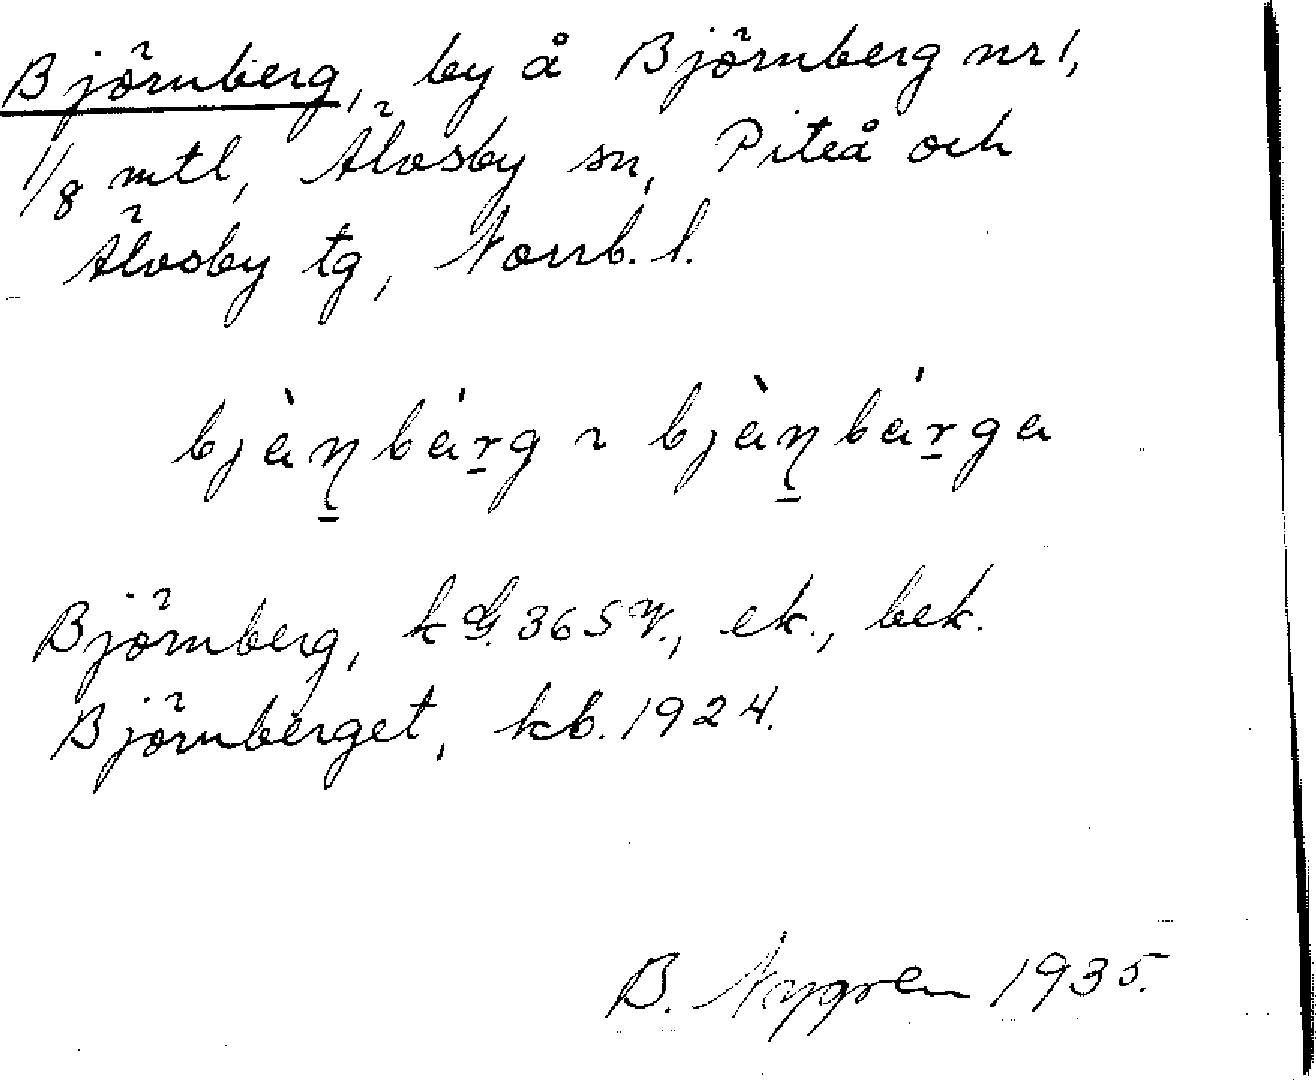 Björnberg, by å Björnberg nr 1,
1/8 mtl, Älvsby sn, Piteå och
Älvsby tg, Norrb. l.
bjàn̠bárg ~ bjàn̠bárga
Björnberg, k 365 ek., bek.
Björnberget, kb. 1924.
B. Nygren 1935.